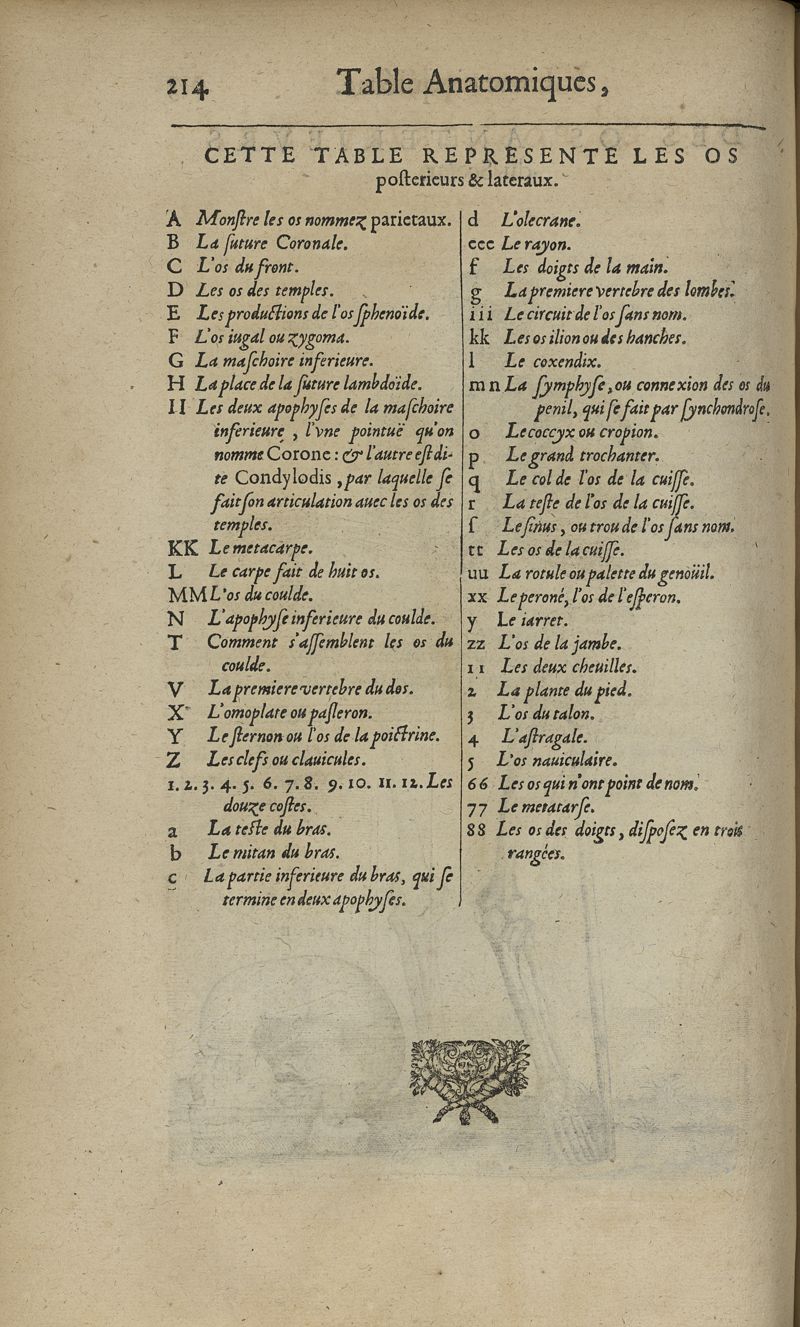 214 Table Anatomiques,
CETTE TABLE REPRESENTE LES OS
poſterieurs & lateraux.
A Monſtre les os nommez parietaux.
B La ſuture Coronale.
C L'os du front.
D Les os des temples.
E Les productions de l'os ſphenoïde.
F L'os iugal ou zygoma.
G La maſchoire inferieure.
H La place de la ſuture lambdoïde.
II Les deux apophyſes de la maſchoire
inferieure, l'vne pointuë qu'on
nomme Corone: & l'autre eſt di-
te Condylodis, par laquelle ſe
fait ſon articulation auec les os des
temples.
KK Le metacarpe.
L Le carpe fait de huit os.
MM L'os du coulde.
N L'apophyſe inferieure du coulde.
T Comment s'aſſemblent les os du
coulde.
V La premiere vertebre du dos.
X L'omoplate ou paſleron.
Y Le ſternon ou l'os de la poictrine.
Z Les clefs ou clauicules.
1. 2. 3. 4. 5. 6. 7. 8. 9. 10. 11. 12. Les
douze coſtes.
a La teſte du bras.
b Le mitan du bras.
c La partie inferieure du bras, qui ſe
termine en deux apophyſes.
d L'olecrane.
eee Le rayon.
f Les doigts de la main.
g La premiere vertebre des lombes.
iii Le circuit de l'os ſans nom.
kk Les os ilion ou des hanches.
l Le coxendix.
m n La ſymphyſe, ou connexion des os du
penil, qui ſe fait par ſynchondroſe.
o Le coccyx ou cropion.
p Le grand trochanter.
q Le col de l'os de la cuiſſe.
r La teſte de l'os de la cuiſſe.
ſ Le ſinus, ou trou de l'os ſans nom.
tt Les os de la cuiſſe.
uu La rotule ou palette du genoüil.
xx Le peroné, l'os de l'eſperon.
y Le iarret.
zz L'os de la jambe.
11 Les deux cheuilles.
2 La plante du pied.
3 L'os du talon.
4 L'aſtragale.
5 L'os nauiculaire.
66 Les os qui n'ont point de nom.
77 Le metatarſe.
88 Les os des doigts, diſpoſez en trois
rangées.